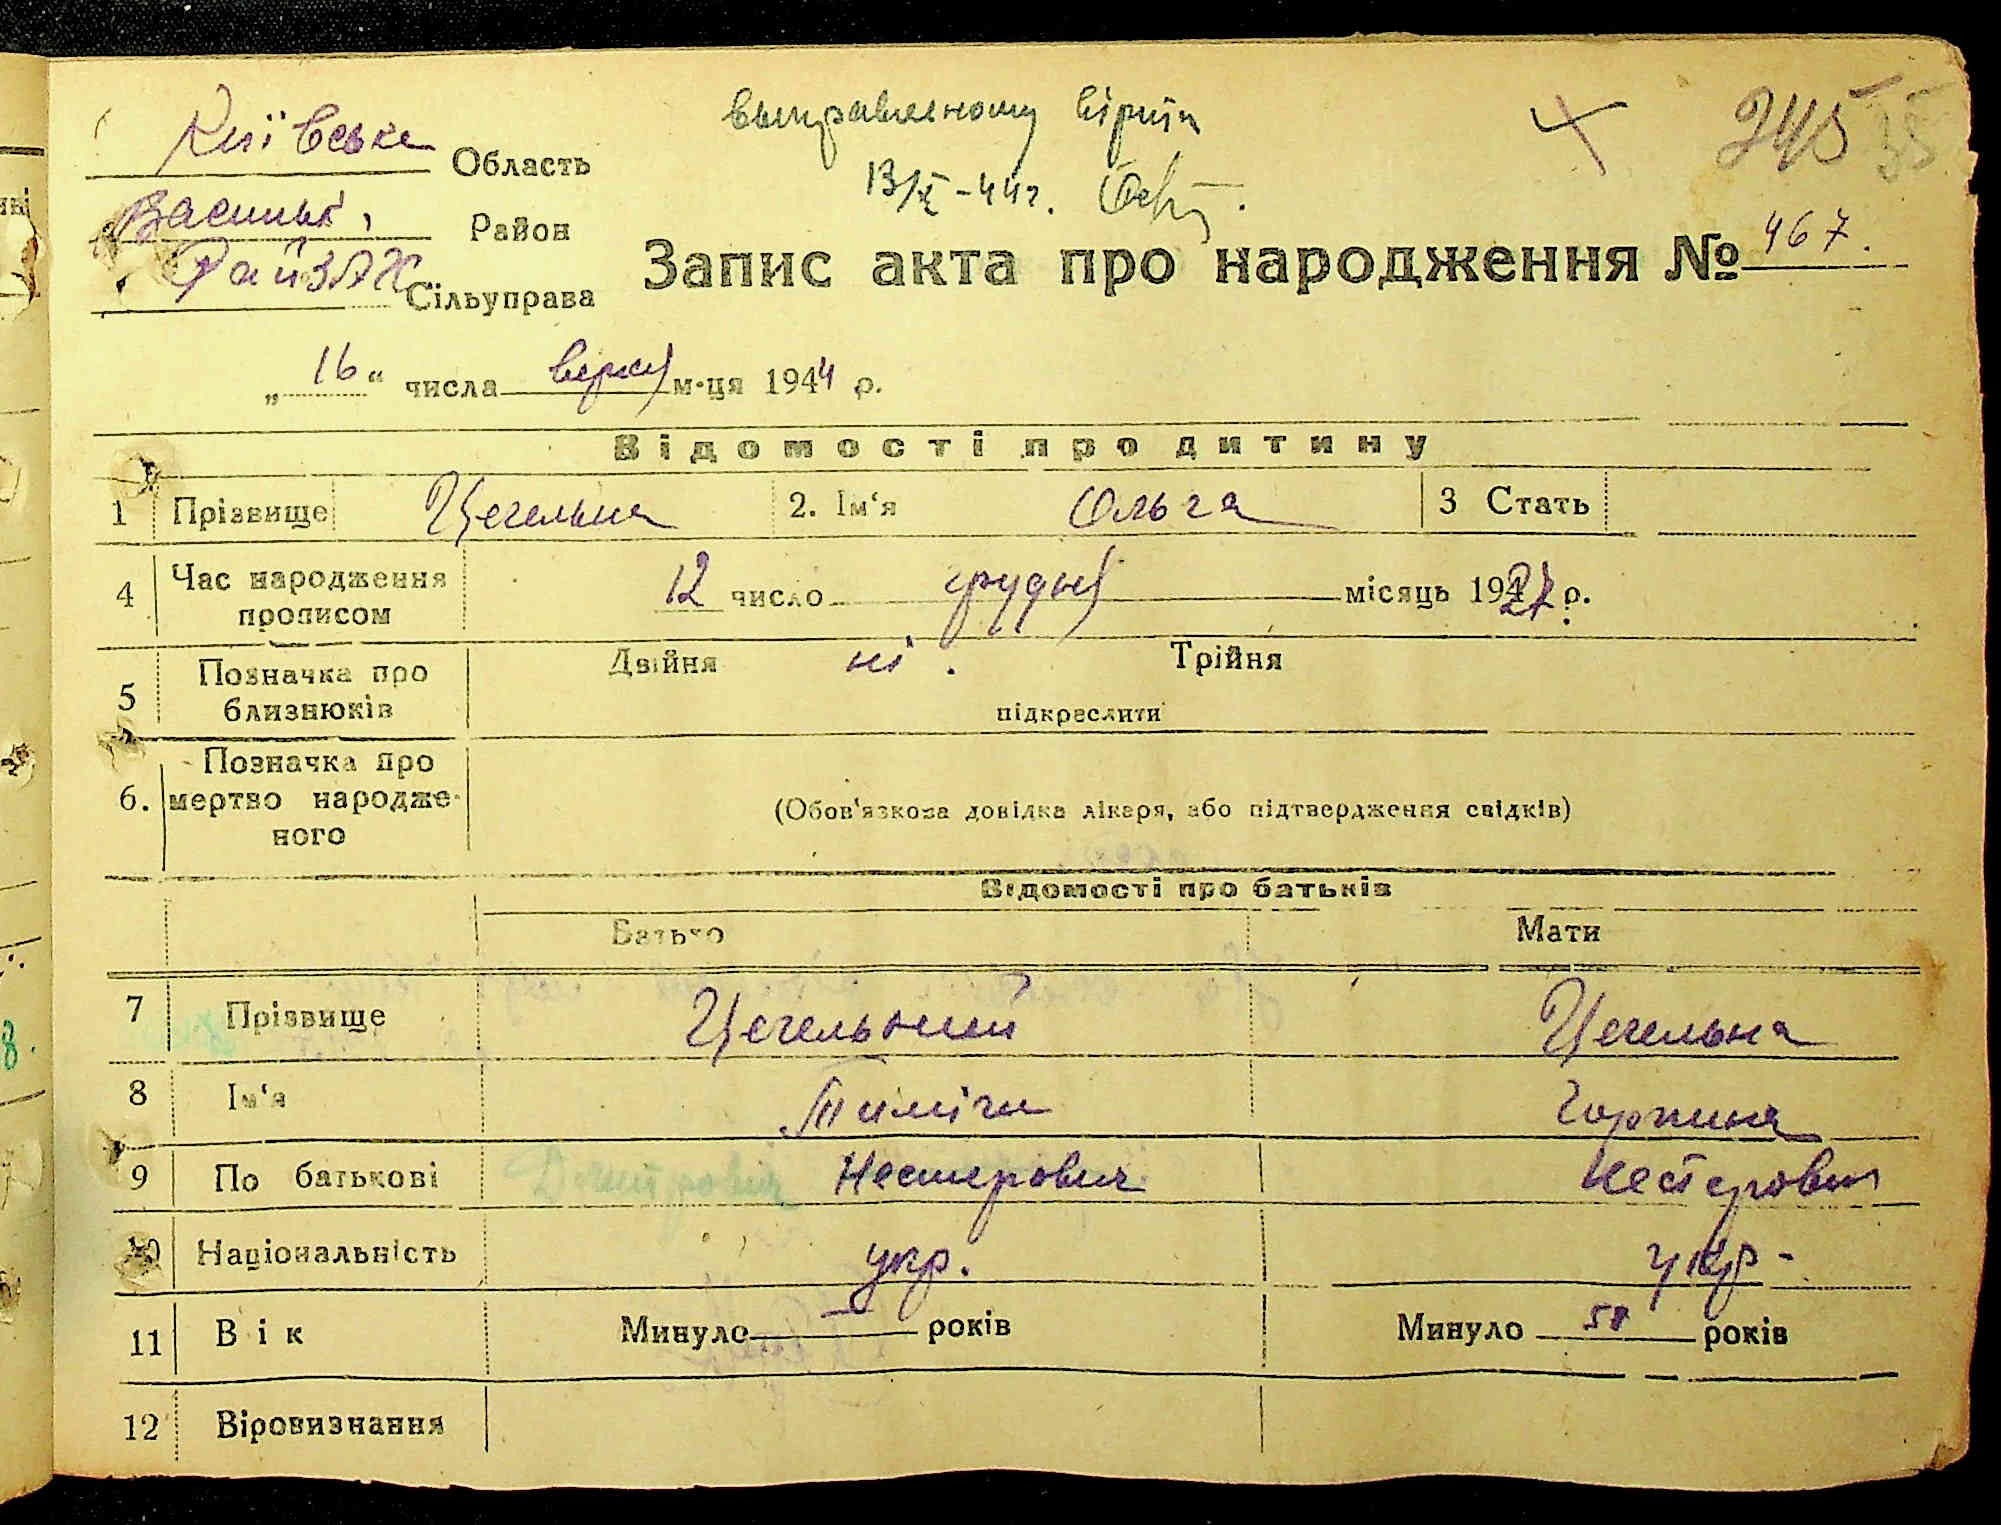 Київське Область
245 35
выправленному вірить
13/X-44г.
Васильк. Район
РайЗАХ Сільуправа
Запис акта про народження № 467.
„16“ числа верес м-ця 1944 р.
Відомості про дитину
1 Прізвище Цегельна 2. Ім‘я Ольга 3 Стать
4 Час народження прописом 12 число грудня місяць 1927 р.
5 Позначка про близнюків Двійня ні. Трійня
підкреслити
6. Позначка про мертво народженого (Обов'язкова довідка лікаря, або підтвердження свідків)
Відомості про батьків
Батько Мати
7 Прізвище Цегельний Цегельна
8 Ім‘я Тиміш Горпина
9 По батькові Дмитрович Нестерович Нестеровна
10 Національність укр. укр-
11 Вік Минуло — років Минуло років
12 Віровизнання